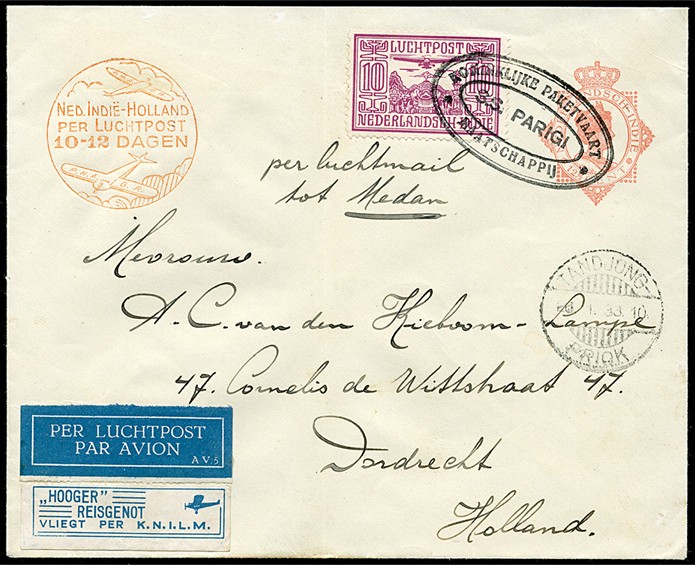 NED. INDIË-HOLLAND
PER LUCHTPOST
10-12 DAGEN
LUCHTPOST
10
NEDERLANDSCH-INDIE
KONINKLIJKE PAKETVAART
S.S. PARIGI
MAATSCHAPPIJ
per luchtmail
tot Medan
Mevrouw.
A. C. van den Kieboom - Lampe
47. Cornelis de Wittstraat 47.
Dordrecht
Holland.
TANDJONG-
PRIOK
PER LUCHTPOST
PAR AVION
A V. 5
„HOOGER"
REISGENOT
VLIEGT PER K.N.I.L.M.